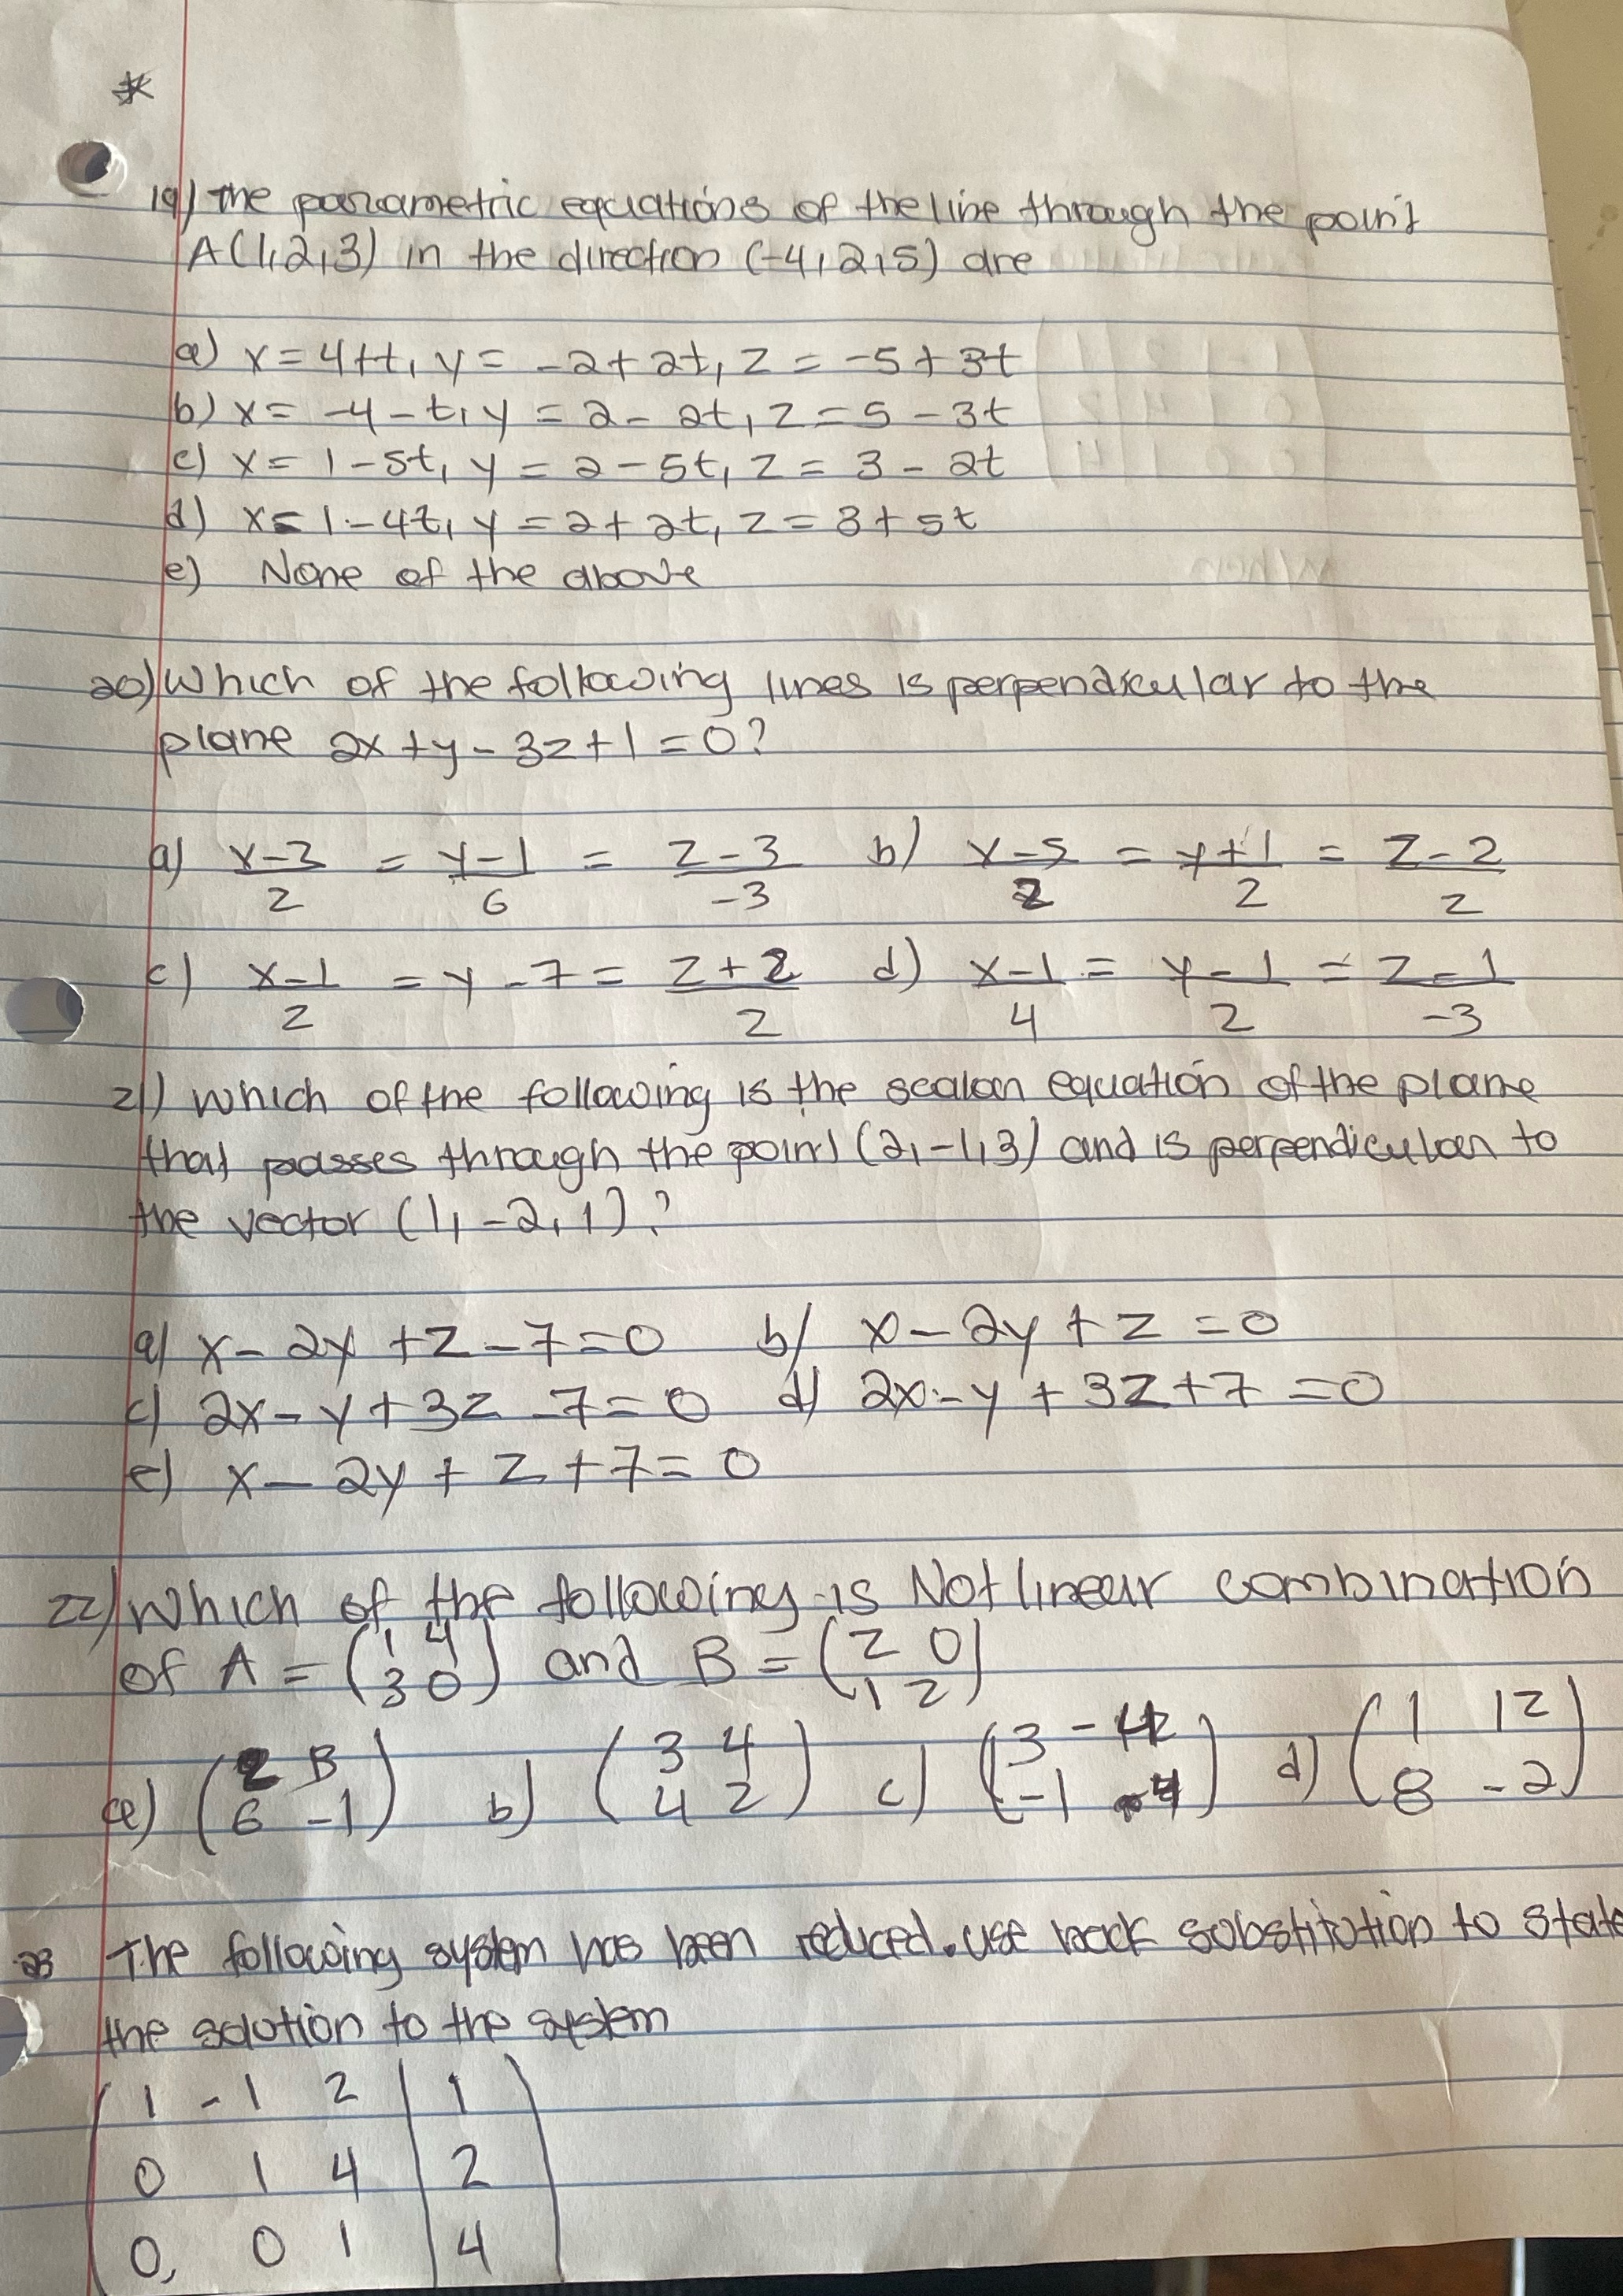 *
19) The parametric equations of the line through the point
A(1,2,3) in the direction (-4,2,5) are
a) x = 4+t, y = -2+2t, z = -5+3t
b) x = -4-t, y = 2-2t, z = 5-3t
c) x = 1-5t, y = 2-5t, z = 3-2t
d) x = 1-4t, y = 2+2t, z = 3+5t
e) None of the above
20) Which of the following lines is perpendicular to the
plane 2x+y-3z+1=0?
a) (x-3)/2 = (y-1)/6 = (z-3)/-3 b) (x-5)/2 = (y+1)/2 = (z-2)/2
c) (x-1)/2 = y-7 = (z+2)/2 d) (x-1)/4 = (y-1)/2 = (z-1)/-3
21) Which of the following is the scalar equation of the plane
that passes through the point (2,-1,3) and is perpendicular to
the vector (1,-2,1)?
a) x-2y+z-7=0 b) x-2y+z=0
c) 2x-y+3z-7=0 d) 2x-y+3z+7=0
e) x-2y+z+7=0
22) Which of the following is Not linear combination
of A = (1 4 / 3 0) and B = (2 0 / 1 2)
a) (2 8 / 6 -1) b) (3 4 / 4 2) c) (3 / -1 -4) d) (1 12 / 8 -2)
23 The following system has been reduced. use back substitution to state
the solution to the system
1 -1 2 | 1
0 1 4 | 2
0, 0 1 | 4